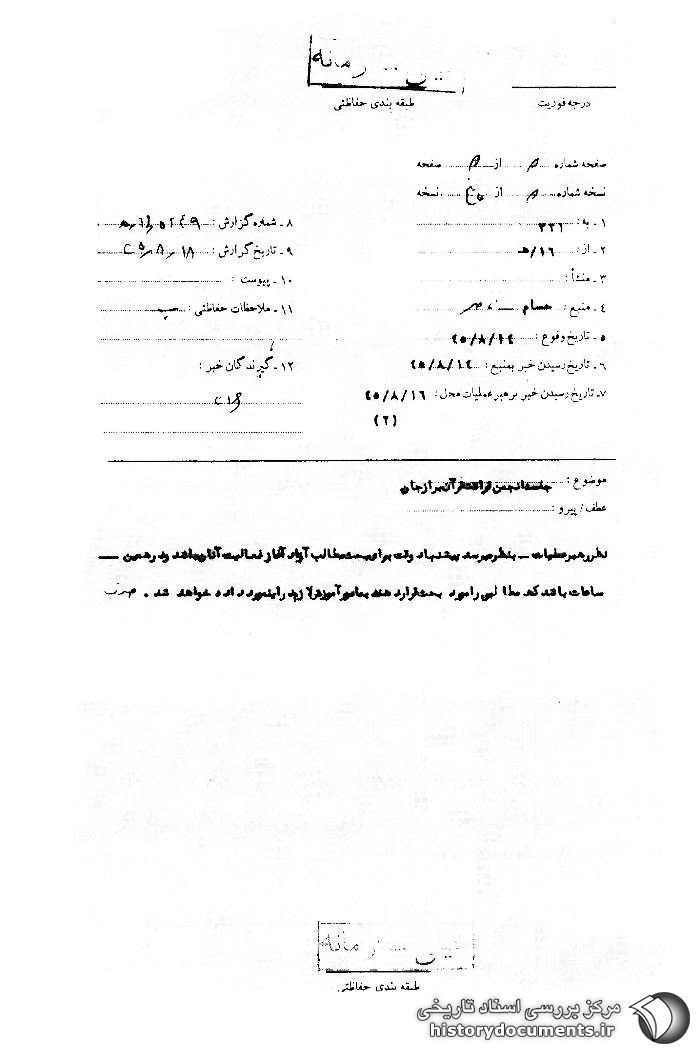 درجه فوریت
طبقه بندی حفاظتی
صفحه شماره از صفحه
نسخه شماره از نسخه
۱ـ به: ۳۳۶
۲ـ از: ۱۶/ﻫ
۳ـ منشأ:
۴ـ منبع: حسام
۵ـ تاریخ وقوع:
۶ـ تاریخ رسیدن خبر بمنبع:
۷ـ تاریخ رسیدن خبر برهبر عملیات محل: ۴۵/۸/۱۶
(۲)
۸ـ شماره گزارش:
۹ـ تاریخ گزارش:
۱۰ـ پیوست:
۱۱ـ ملاحظات حفاظتی:
۱۲ـ گیرندگان خبر:
موضوع: جلسه انجمن قرائت قرآن برازجان
عطف/پیرو:
نظر رهبر عملیات ـ بنظر میرسد پیشنهاد وقت برای بحث مطالب آزاد آغاز فعالیت آنان باشد و در همین
ساعات باشد که مطالبی را مورد بحث قرار دهند بمامور آموزش لازم در اینمورد داده خواهد شد.
طبقه بندی حفاظتی
مرکز بررسی اسناد تاریخی
historydocuments.ir